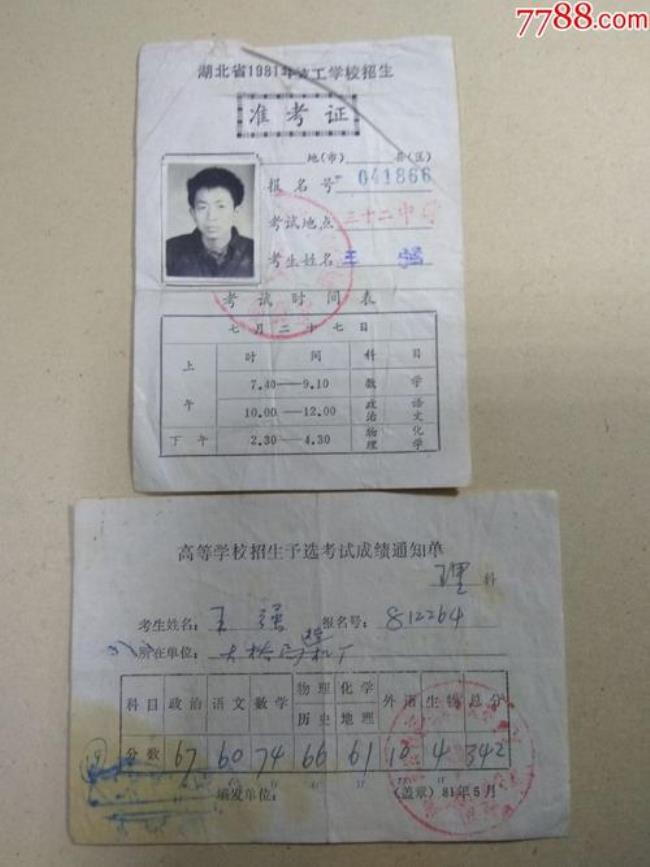 7788.com
湖北省1981年技工学校招生
准考证
地(市) 县(区)
报名号 041866
考试地点 三十二中
考生姓名 王 强
考试时间表
七月二十七日
上午 时间 科目
7.40—9.10 数学
10.00—12.00 政治 语文
下午 2.30—4.30 物理 化学
高等学校招生予选考试成绩通知单
理 科
考生姓名: 王 强 报名号: 812264
所在单位:
科目 政治 语文 数学 物理 历史 化学 地理 外语 生物 总分
分数 67 60 74 66 61 10 4 342
填发单位: (盖章) 81年5月